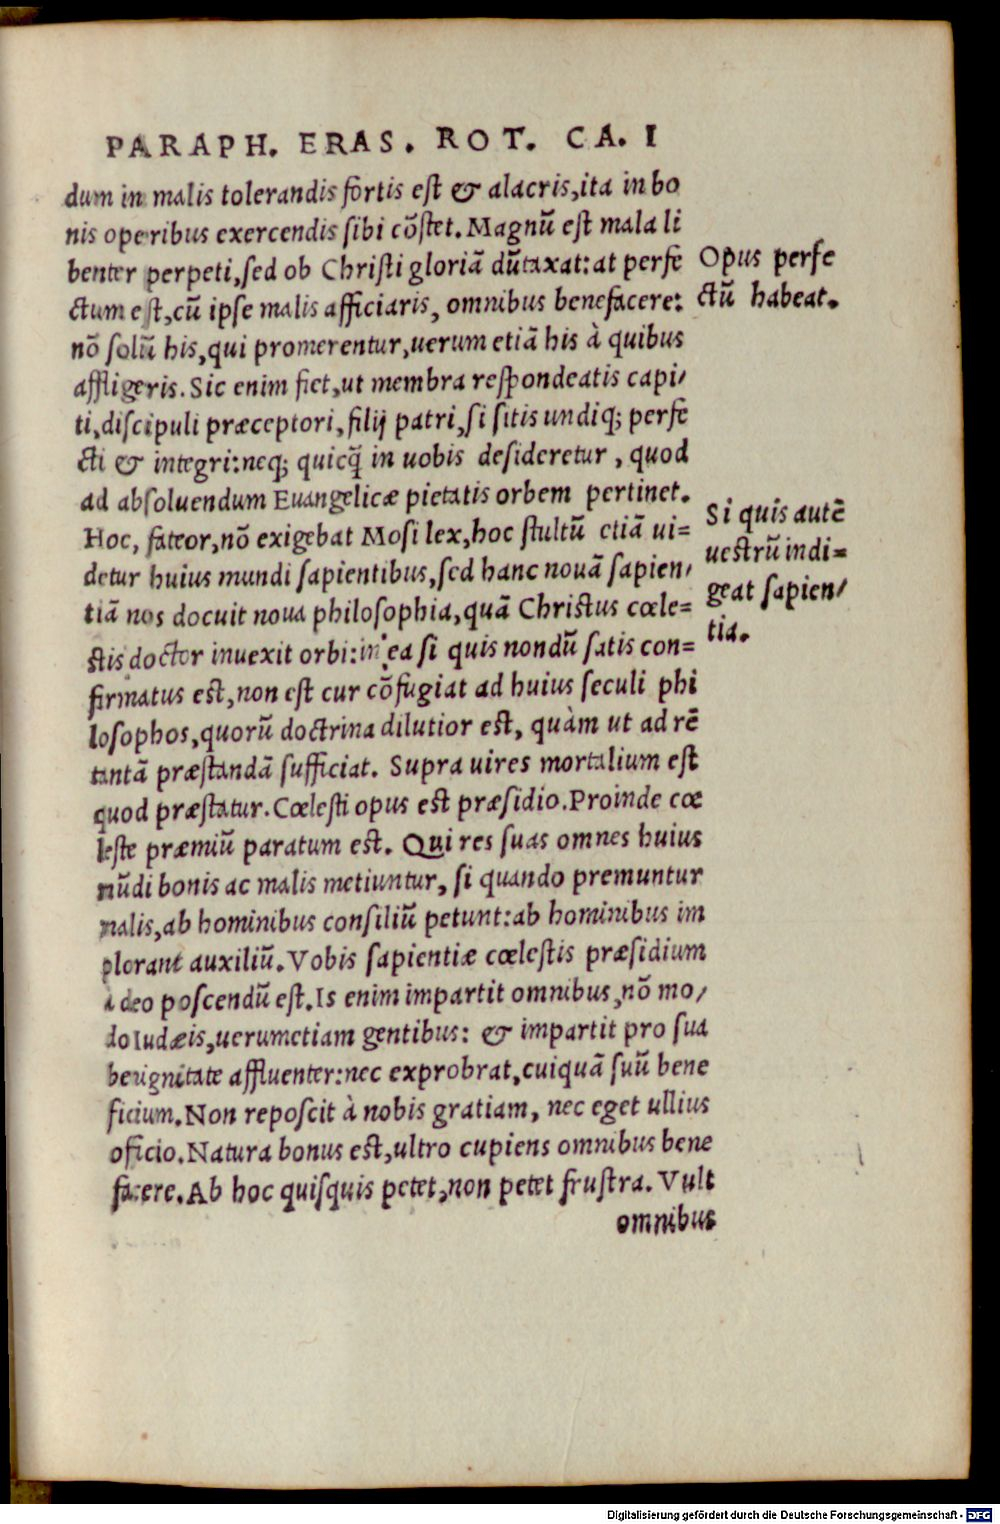 PARAPH. ERAS. ROT. CA. I
dum in malis tolerandis fortis est & alacris, ita in bo
nis operibus exercendis sibi cõstet. Magnũ est mala li
benter perpeti, sed ob Christi gloriã dũtaxat: at perfe
ctum est, cũ ipse malis afficiaris, omnibus benefacere:
nõ solũ his, qui promerentur, uerum etiã his à quibus
affligeris. Sic enim fiet, ut membra respondeatis capi/
ti, discipuli præceptori, filij patri, si sitis undiq; perfe
cti & integri: neq; quicq̃ in uobis desideretur, quod
ad absoluendum Euangelicæ pietatis orbem pertinet.
Hoc, fateor, nõ exigebat Mosi lex, hoc stultũ etiã ui=
detur huius mundi sapientibus, sed hanc nouã sapien/
tiã nos docuit noua philosophia, quã Christus cœle=
stis doctor inuexit orbi: in ea si quis nondũ satis con=
firmatus est, non est cur cõfugiat ad huius seculi phi
losophos, quorũ doctrina dilutior est, quàm ut ad rẽ
tantã præstandã sufficiat. Supra uires mortalium est
quod præstatur. Cœlesti opus est præsidio. Proinde cœ
leste præmiũ paratum est. Qui res suas omnes huius
mũdi bonis ac malis metiuntur, si quando premuntur
malis, ab hominibus consiliũ petunt: ab hominibus im
plorant auxiliũ. Vobis sapientiæ cœlestis præsidium
à deo poscendũ est. Is enim impartit omnibus, nõ mo/
do Iudæis, uerumetiam gentibus: & impartit pro sua
benignitate affluenter: nec exprobrat, cuiquã suũ bene
ficium. Non reposcit à nobis gratiam, nec eget ullius
oficio. Natura bonus est, ultro cupiens omnibus bene
facere. Ab hoc quisquis petet, non petet frustra. Vult
omnibus
Opus perfe
ctũ habeat.
Si quis autẽ
uestrũ indi=
geat sapien/
tia.
Digitalisierung gefördert durch die Deutsche Forschungsgemeinschaft - DFG